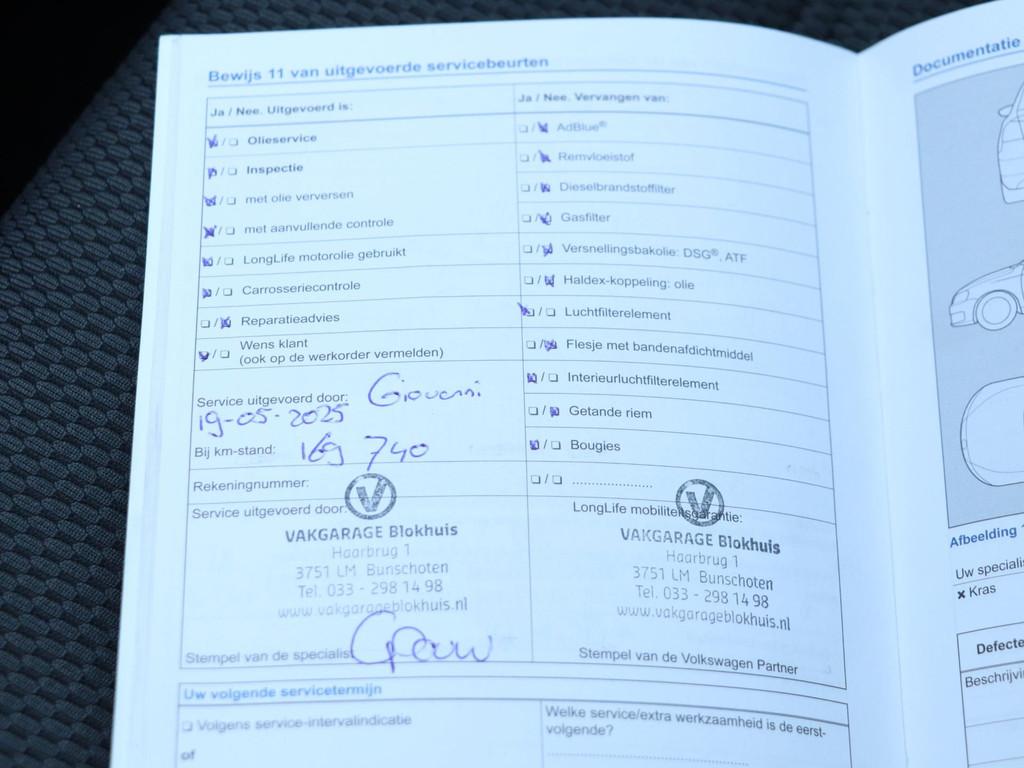 Bewijs 11 van uitgevoerde servicebeurten
Ja / Nee. Uitgevoerd is:
☑ / ☐ Olieservice
☑ / ☐ Inspectie
☑ / ☐ met olie verversen
☑ / ☐ met aanvullende controle
☑ / ☐ LongLife motorolie gebruikt
☑ / ☐ Carrosseriecontrole
☐ / ☑ Reparatieadvies
☑ / ☐ Wens klant
(ook op de werkorder vermelden)
Service uitgevoerd door: Giovanni
19-05-2025
Bij km-stand: 169 740
Rekeningnummer:
Service uitgevoerd door:
V
VAKGARAGE Blokhuis
Haarbrug 1
3751 LM Bunschoten
Tel. 033 - 298 14 98
www.vakgarageblokhuis.nl
Stempel van de specialist
Ja / Nee. Vervangen van:
☐ / ☑ AdBlue®
☐ / ☑ Remvloeistof
☐ / ☑ Dieselbrandstoffilter
☐ / ☑ Gasfilter
☐ / ☑ Versnellingsbakolie: DSG®, ATF
☐ / ☑ Haldex-koppeling: olie
☑ / ☐ Luchtfilterelement
☐ / ☑ Flesje met bandenafdichtmiddel
☑ / ☐ Interieurluchtfilterelement
☐ / ☑ Getande riem
☑ / ☐ Bougies
☐ / ☐ .....................
LongLife mobiliteitsgarantie:
V
VAKGARAGE Blokhuis
Haarbrug 1
3751 LM Bunschoten
Tel. 033 - 298 14 98
www.vakgarageblokhuis.nl
Stempel van de Volkswagen Partner
Uw volgende servicetermijn
☐ Volgens service-intervalindicatie
of
Welke service/extra werkzaamheid is de eerst-
volgende?
Documentatie
Afbeelding
Uw speciali
✗ Kras
Defecte
Beschrijvi